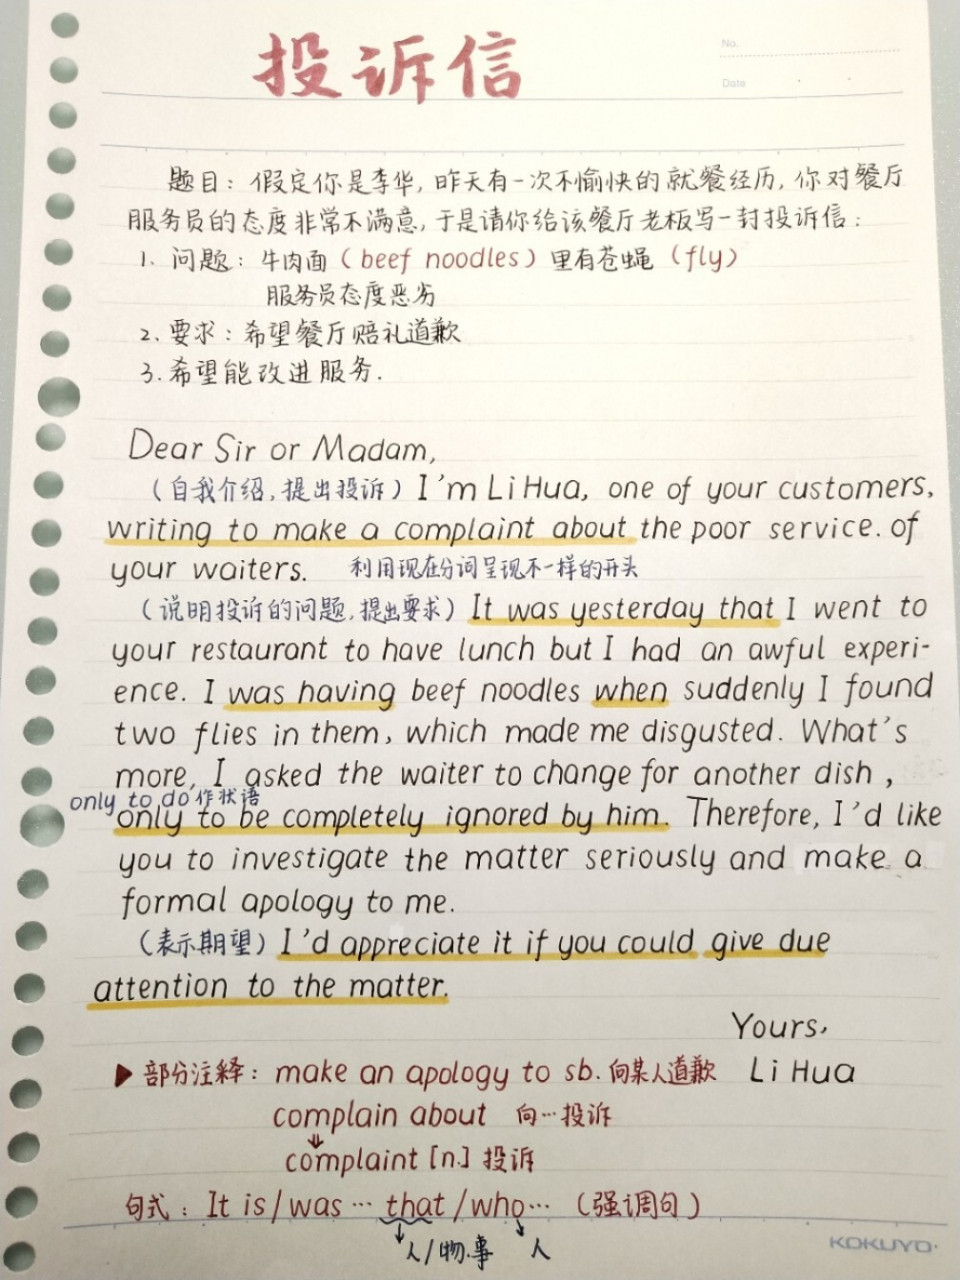 投诉信
No.
Date
题目：假定你是李华，昨天有一次不愉快的就餐经历，你对餐厅
服务员的态度非常不满意，于是请你给该餐厅老板写一封投诉信：
1、问题：牛肉面（beef noodles）里有苍蝇（fly）
服务员态度恶劣
2、要求：希望餐厅赔礼道歉
3.希望能改进服务.
Dear Sir or Madam,
（自我介绍，提出投诉）I'm Li Hua, one of your customers,
writing to make a complaint about the poor service. of
your waiters. 利用现在分词呈现不一样的开头
（说明投诉的问题，提出要求）It was yesterday that I went to
your restaurant to have lunch but I had an awful experi-
ence. I was having beef noodles when suddenly I found
two flies in them, which made me disgusted. What's
more, I asked the waiter to change for another dish,
only to do 作状语
only to be completely ignored by him. Therefore, I'd like
you to investigate the matter seriously and make a
formal apology to me.
（表示期望）I'd appreciate it if you could give due
attention to the matter.
Yours,
Li Hua
▶部分注释：make an apology to sb. 向某人道歉
complain about 向…投诉
⇓
complaint [n.] 投诉
句式：It is/was … that/who…（强调句）
人/物.事 人
KOKUYO